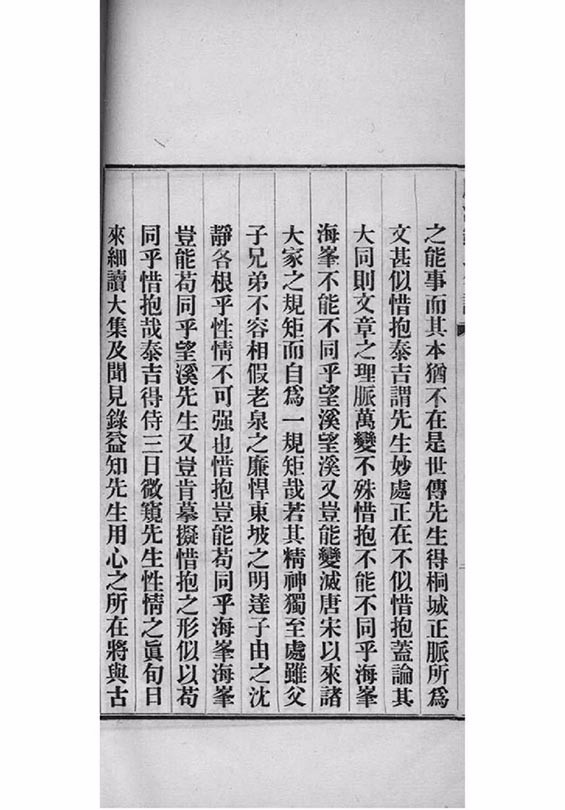 之能事而其本猶不在是世傳先生得桐城正脈所爲
文甚似惜抱泰吉謂先生妙處正在不似惜抱蓋論其
大同則文章之理脈萬變不殊惜抱不能不同乎海峯
海峯不能不同乎望溪望溪又豈能變滅唐宋以來諸
大家之規矩而自爲一規矩哉若其精神獨至處雖父
子兄弟不容相假老泉之廉悍東坡之明達子由之沈
靜各根乎性情不可强也惜抱豈能苟同乎海峯海峯
豈能苟同乎望溪先生又豈肯摹擬惜抱之形似以苟
同乎惜抱哉泰吉得侍三日微窺先生性情之眞旬日
來細讀大集及聞見錄益知先生用心之所在將與古